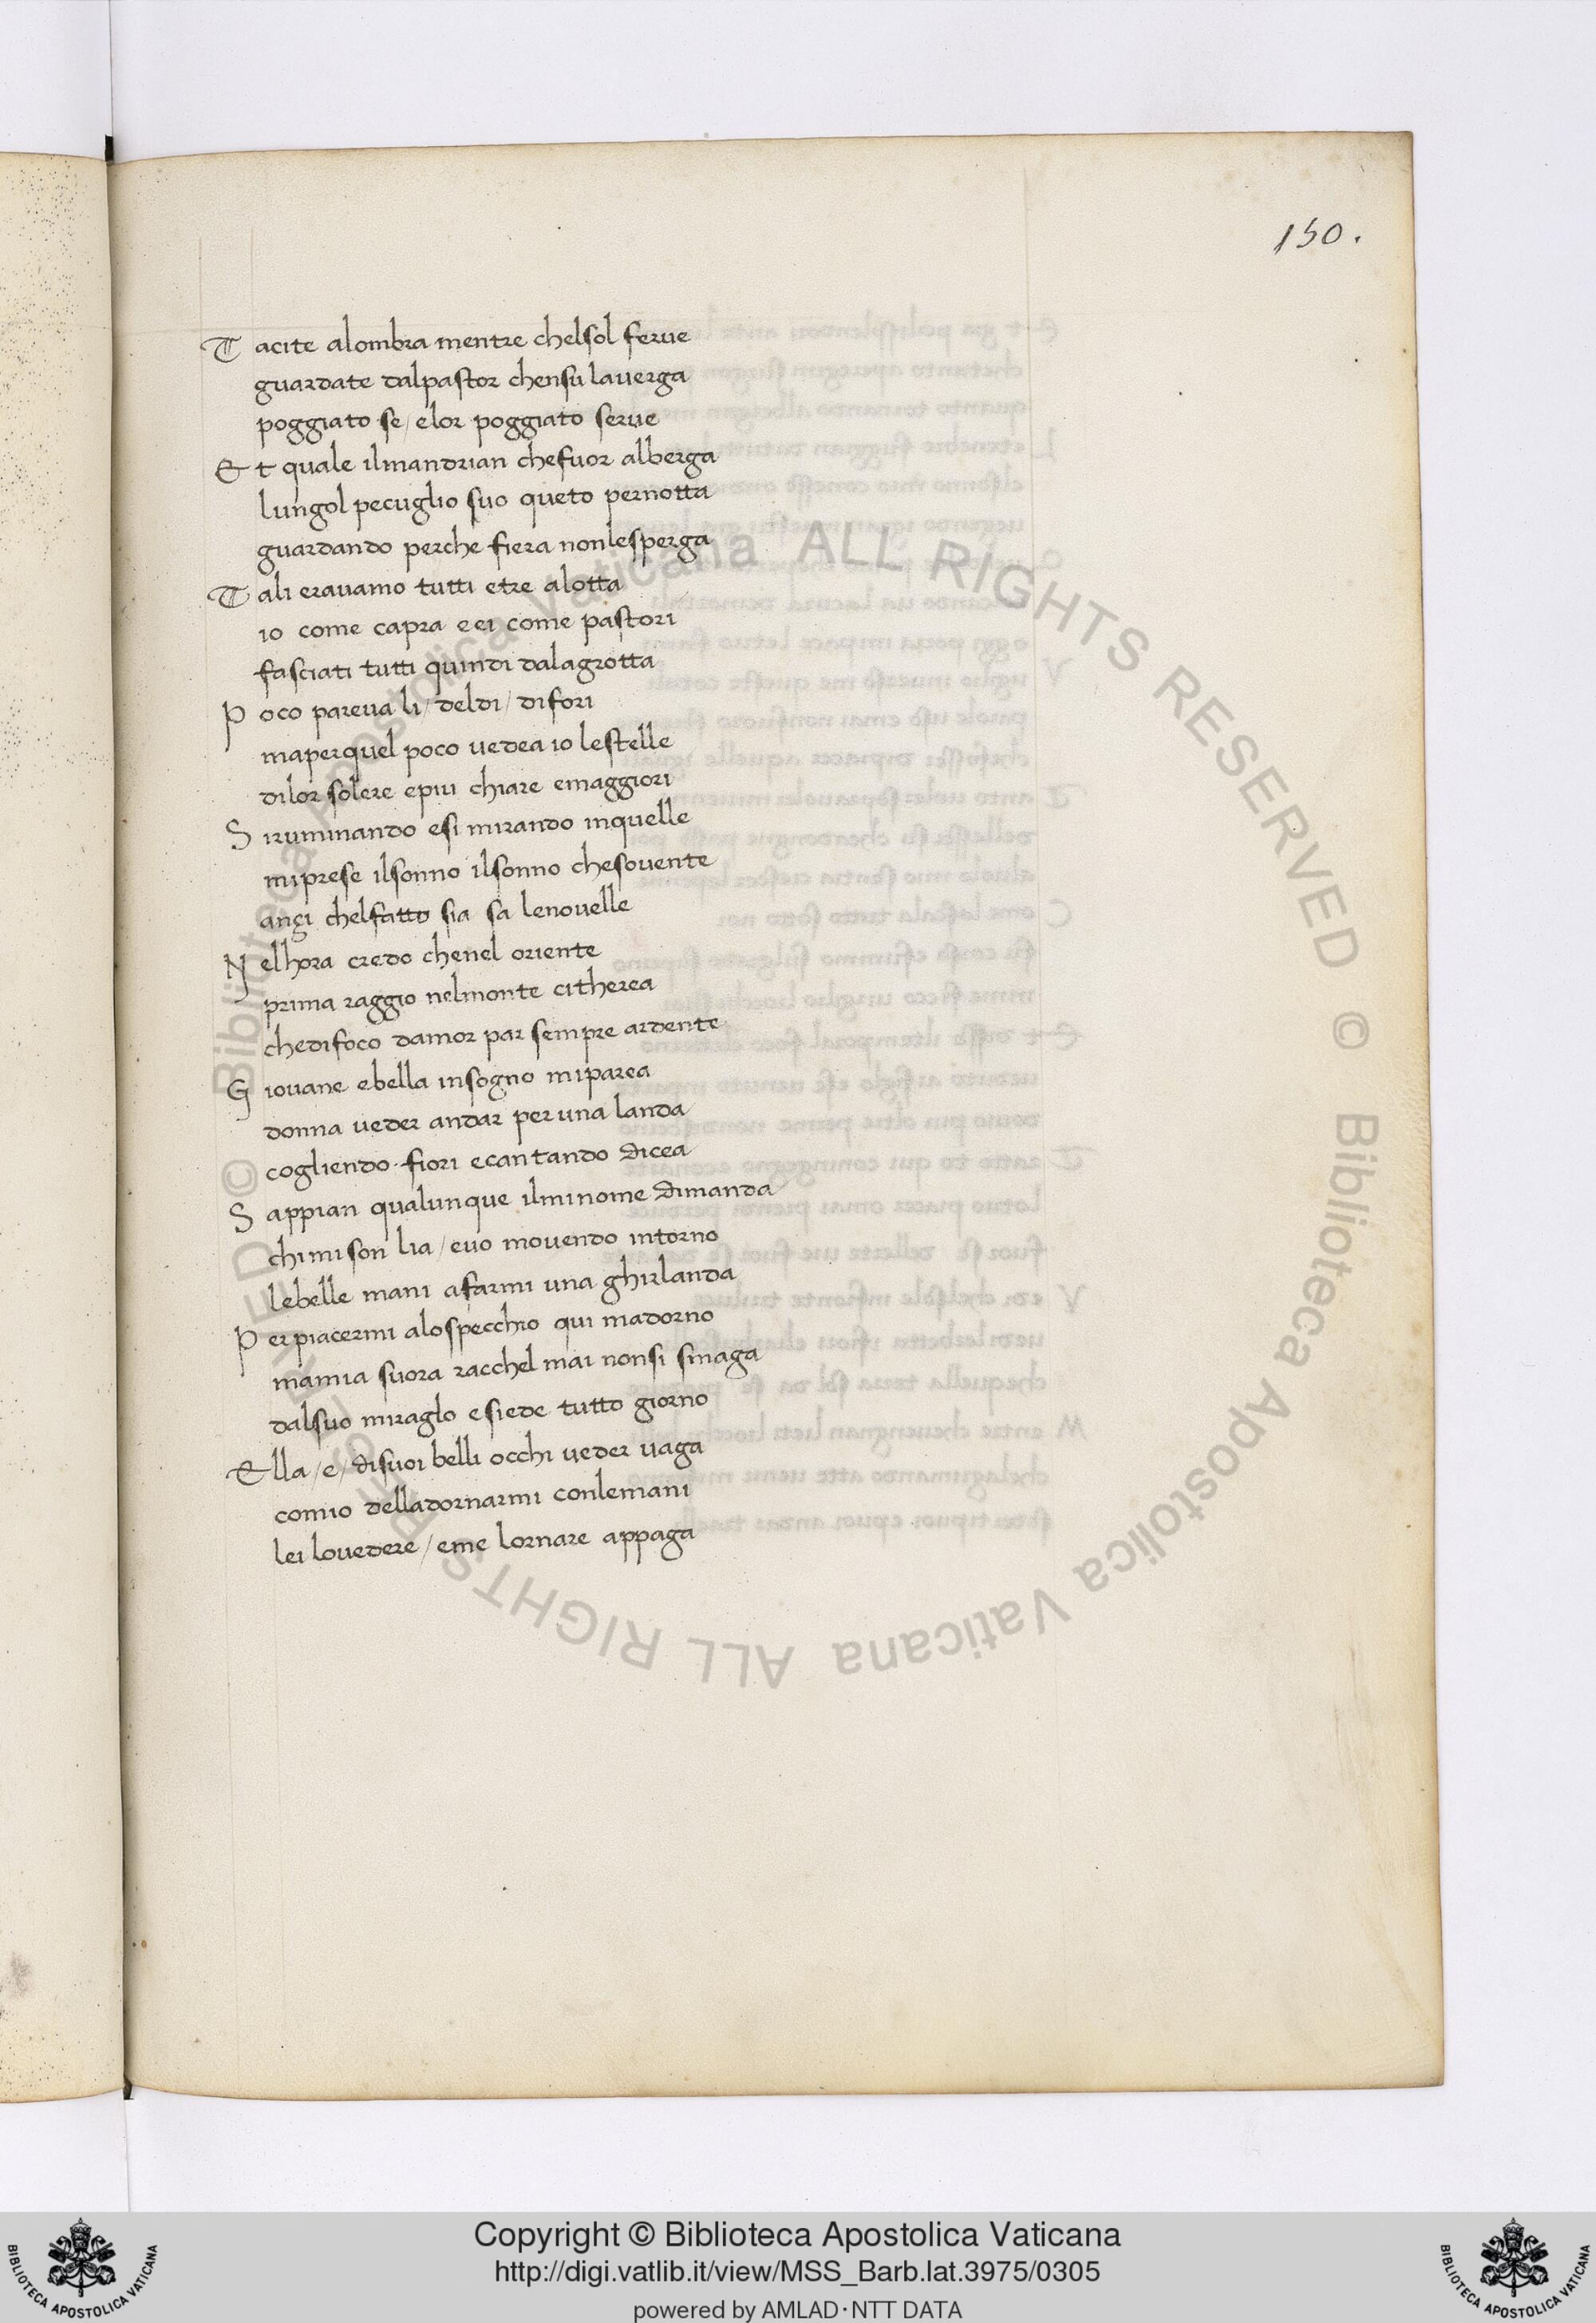 150.
T acite alombra mentre chelsol ferue
guardate dalpastor chensu lauerga
poggiato se / elor poggiato serue
E t quale ilmandrian chefuor alberga
lungol pecuglio suo queto pernotta
guardando perche fiera nonlesperga
T ali erauamo tutti etre alotta
io come capra eei come pastori
fasciati tutti quindi dalagrotta
P oco pareua li / deldi / difori
maperquel poco uedea io lestelle
dilor solere epiu chiare emaggiori
S iruminando esi mirando inquelle
miprese ilsonno ilsonno chesouente
anzi chelfatto sia sa lenouelle
N elhora credo chenel oriente
prima raggio nelmonte citherea
chedifoco damor par sempre ardente
G iouane ebella insogno miparea
donna ueder andar peruna landa
cogliendo fiori ecantando dicea
S appian qualunque ilminome dimanda
chimison lia / euo mouendo intorno
lebelle mani afarmi una ghirlanda
P erpiacermi alospecchio qui madorno
mamia suora racchel mai nonsi smaga
dalsuo miraglo esiede tutto giorno
E lla / e / disuoi belli occhi ueder uaga
comio delladornarmi conlemani
lei louedere / eme lornare appaga
© Biblioteca Apostolica Vaticana ALL RIGHTS RESERVED © Biblioteca Apostolica Vaticana ALL RIGHTS RESERVED
Copyright © Biblioteca Apostolica Vaticana
http://digi.vatlib.it/view/MSS_Barb.lat.3975/0305
powered by AMLAD·NTT DATA
BIBLIOTECA APOSTOLICA VATICANA
BIBLIOTECA APOSTOLICA VATICANA